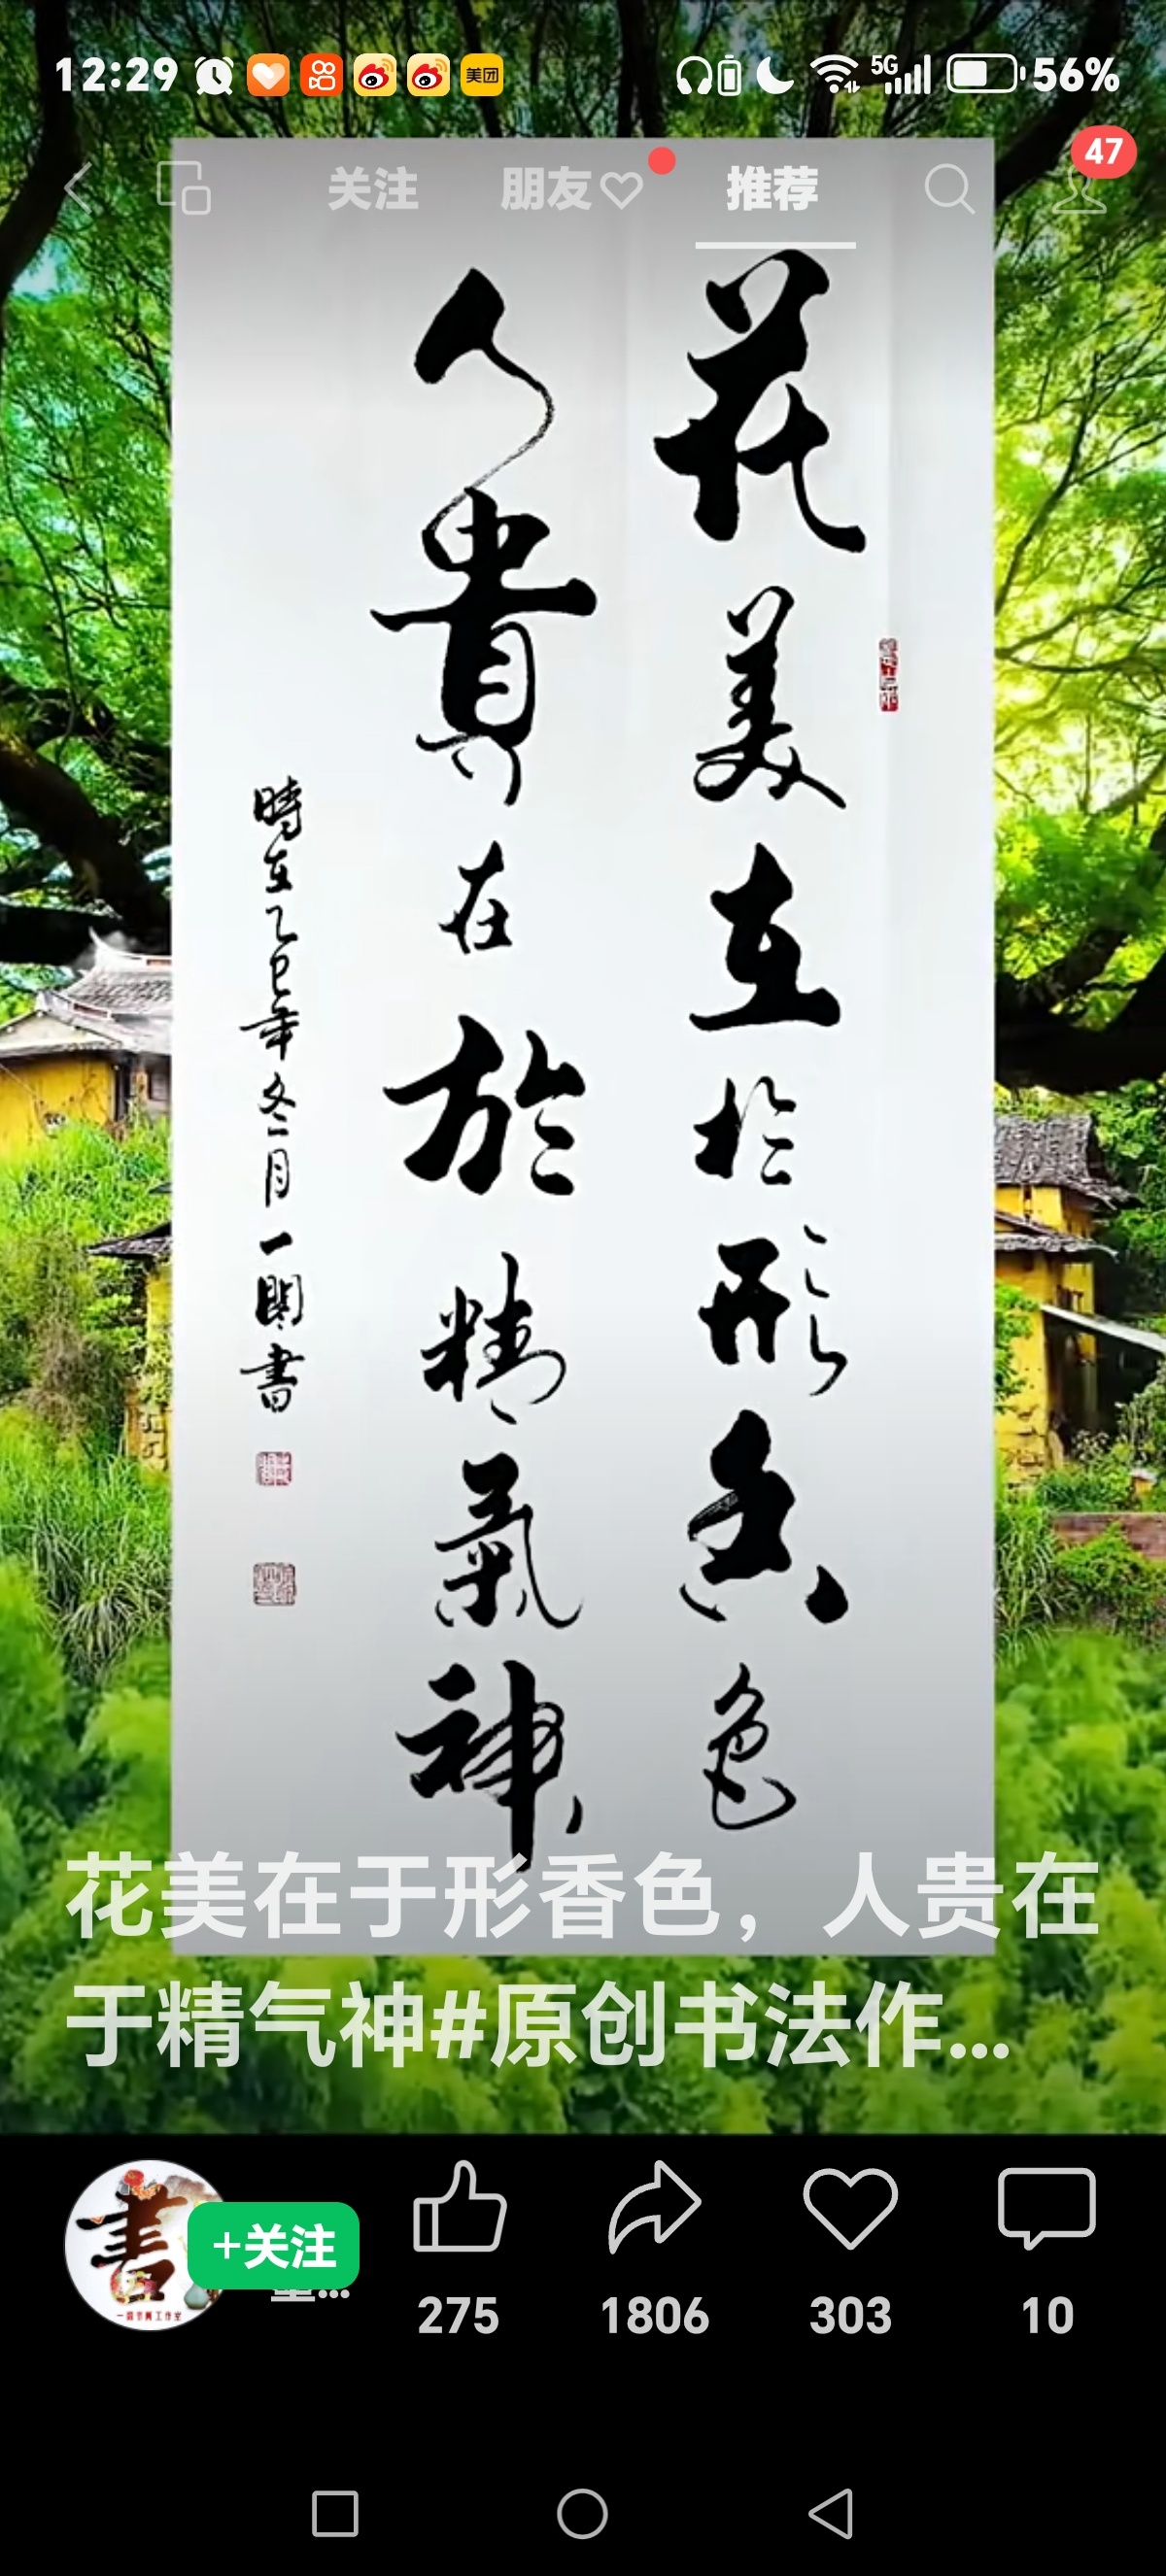 12:29 美团 5G 56%
关注 朋友 推荐 47
花美在於形香色
人貴在於精氣神
時在乙巳年冬月一閑書
花美在于形香色，人贵在
于精气神#原创书法作...
書
+关注
275 1806 303 10